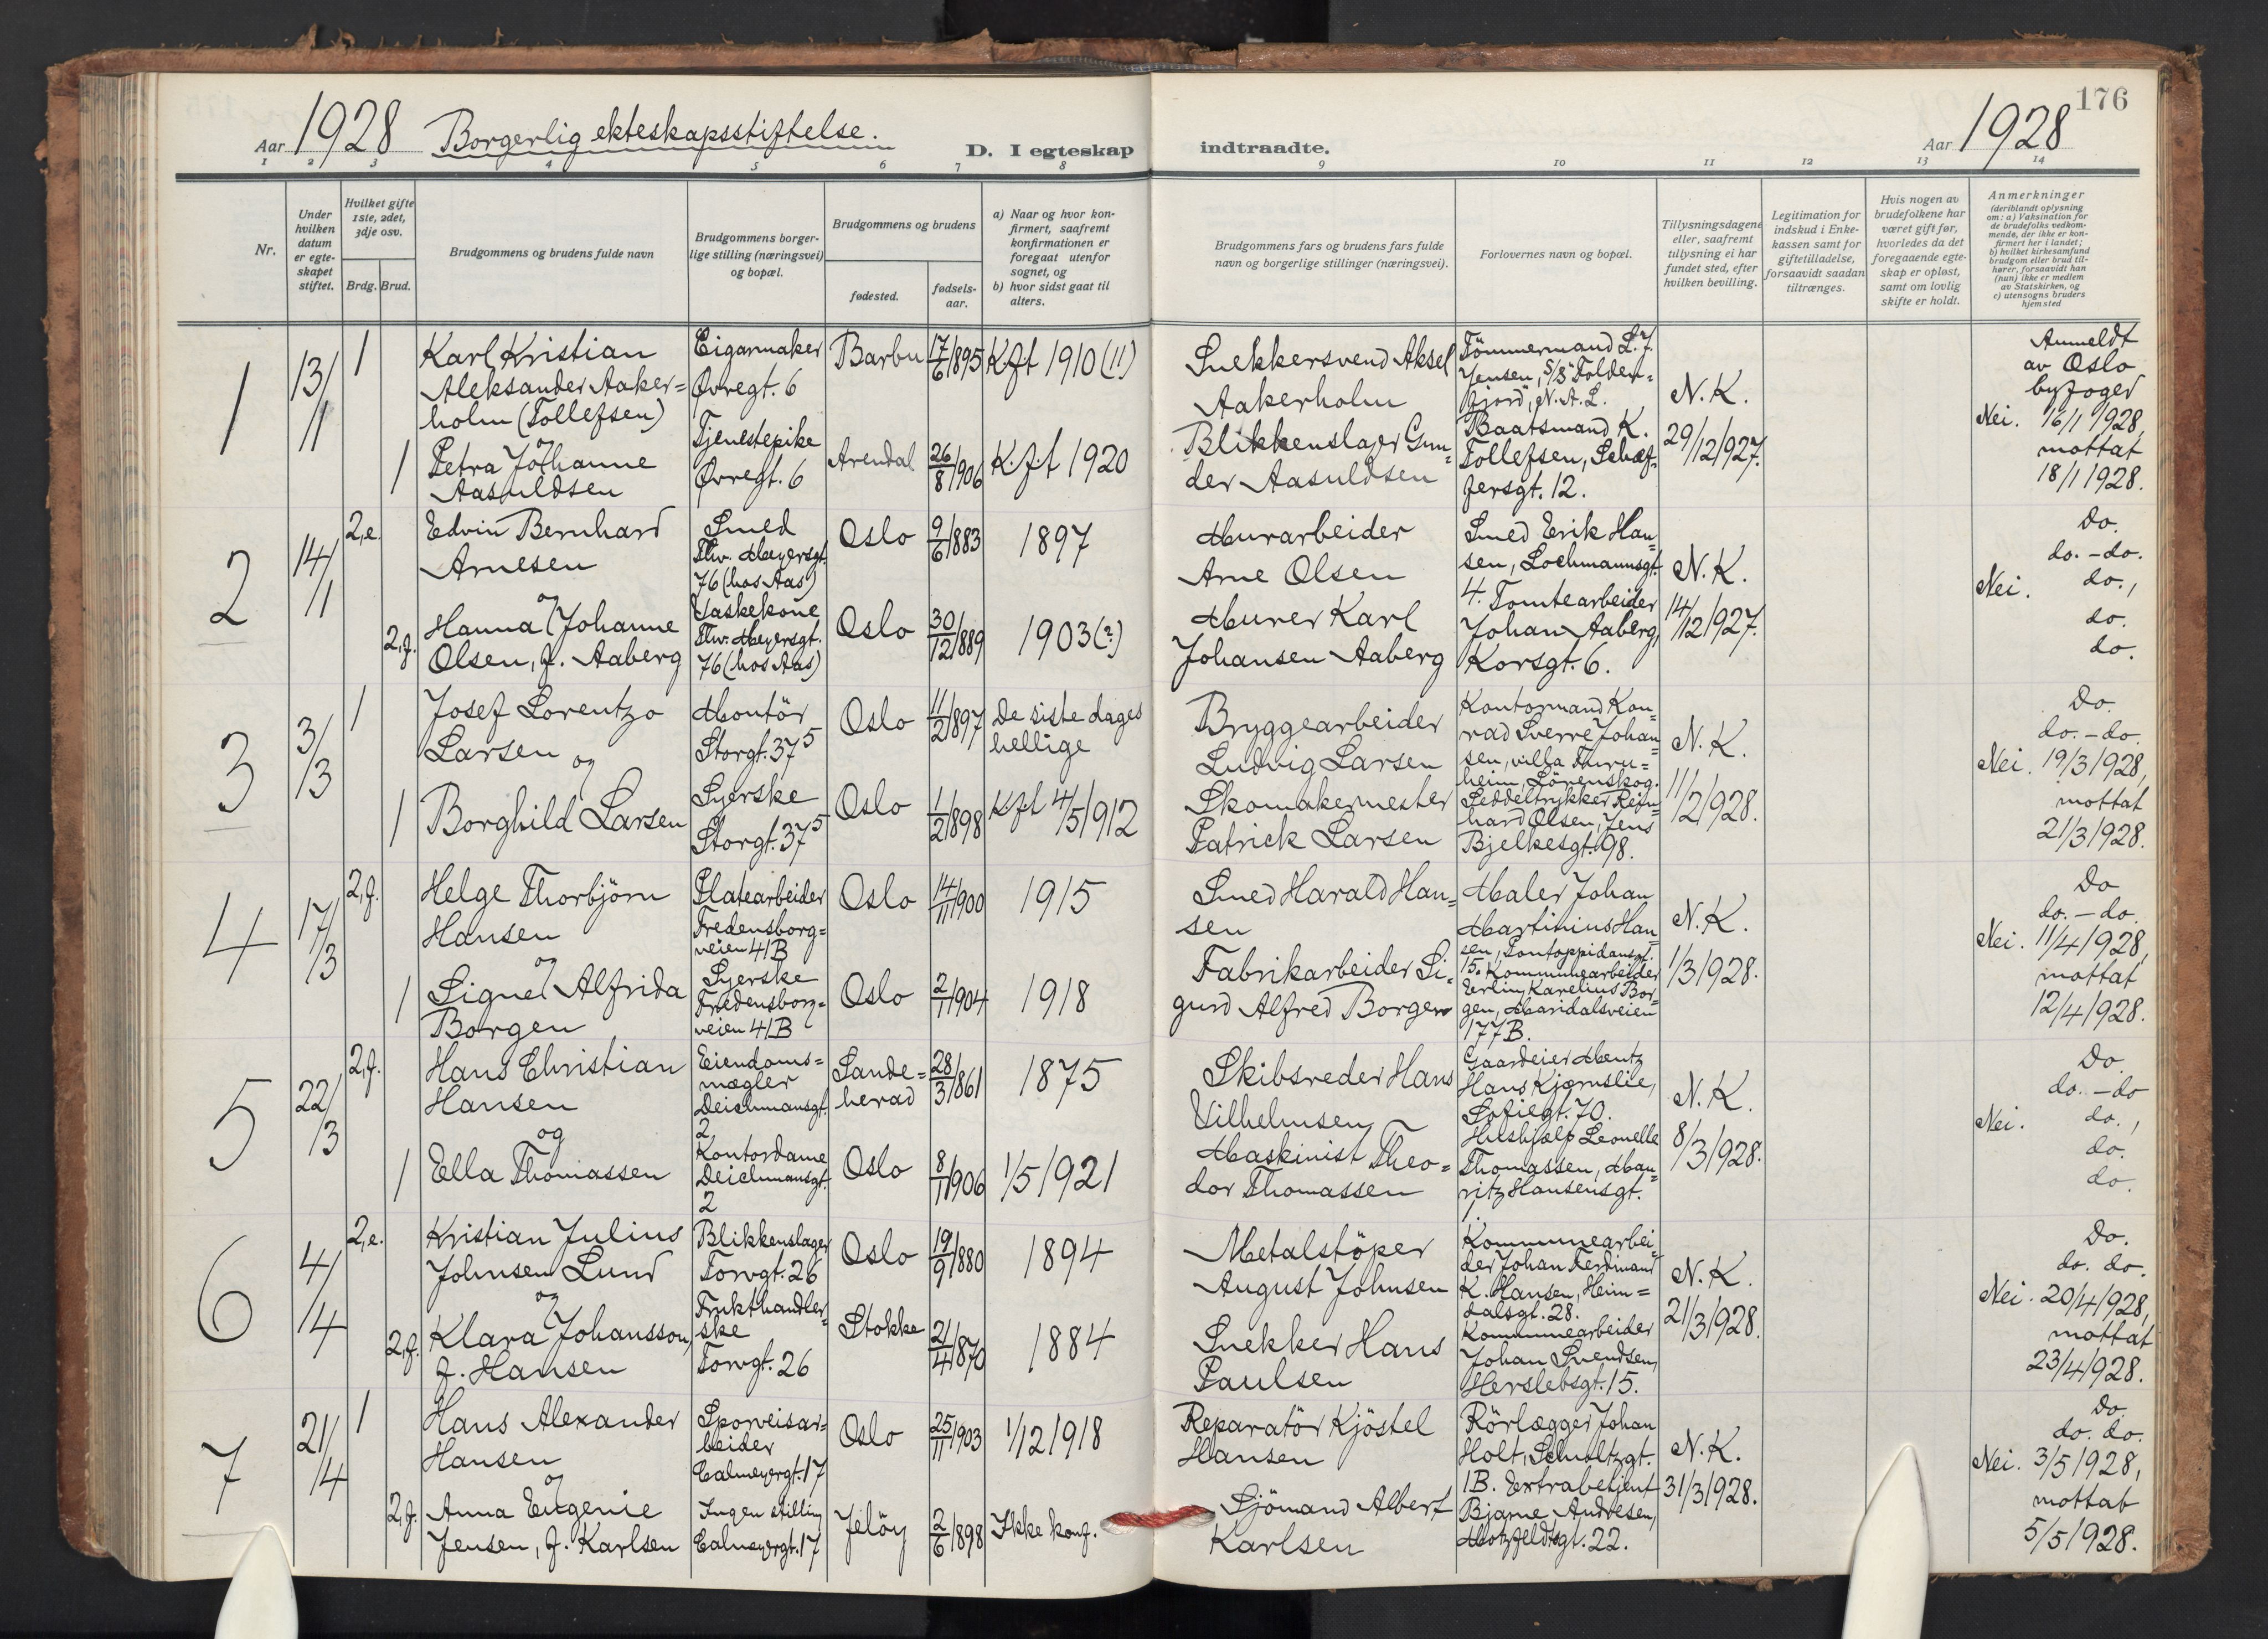 176
Aar 1928 Borgerlig ekteskapsstiftelse. D. I egteskap indtraadte. Aar 1928
1 2 3 4 5 6 7 8 9 10 11 12 13 14
Nr.
Under hvilken datum er egte-skapet stiftet.
Hvilket gifte 1ste, 2det, 3dje osv.
Brdg. Brud.
Brudgommens og brudens fulde navn
Brudgommens borger-lige stilling (næringsvei) og bopæl.
Brudgommens og brudens
fødested.
fødsels-aar.
a) Naar og hvor kon-firmert, saafremt konfirmationen er foregaat utenfor sognet, og
b) hvor sidst gaat til alters.
Brudgommens fars og brudens fars fulde
navn og borgerlige stillinger (næringsvei).
Forlovernes navn og bopæl.
Tillysningsdagene eller, saafremt tillysning ei har fundet sted, efter hvilken bevilling.
Legitimation for indskud i Enke-kassen samt for giftetilladelse, forsaavidt saadan tiltrænges.
Hvis nogen av brudefolkene har været gift før, hvorledes da det foregaaende egte-skap er opløst, samt om lovlig skifte er holdt.
Anmerkninger
(deriblandt oplysning om: a) Vaksination for de brudefolks vedkom-mende, der ikke er kon-firmert her i landet; b) hvilket kirkesamfund brudgom eller brud til-hører, forsaavidt han (hun) ikke er medlem av Statskirken, og c) utensogns bruders hjemsted
1
13/1
1
Karl Kristian
Aleksander Aaker=
holm (Tollefsen)
og
Cigarmaker
Øvregt. 6
Barbu
17/6 1895
K.f.t 1910 (11)
Snekkersvend Aksel
Aakerholm
Tømmermand L. J.
Jensen, S/S "Folden=
fjord", N. A. L.
N. K.
29/12 1927.
Nei.
Anmeldt
av Oslo
byfoged
16/1 1928,
mottat
18/1 1928.
1
Petra Johanne
Aasuldsen
Tjenestepike
Øvregt. 6
Arendal
26/8 1906
K.f.t 1920
Blikkenslager Gun=
der Aasuldsen
Baatsmand K.
Tollefsen, Schæf=
fersgt. 12.
2
14/1
2,e.
Edvin Bernhard
Arnesen
og
Smed
Thv. Meyersgt.
76 (hos Aas)
Oslo
9/6 1883
1897
Murarbeider
Arne Olsen
Smed Erik Han=
sen, Lochmannsgt.
4.
N. K.
14/12 1927.
Nei.
Do.
do. - do.
do.,
do.
do.
2,f.
Hanna Johanne
Olsen, f. Aaberg
Vaskekone
Thv. Meyersgt.
76 (hos Aas)
Oslo
30/12 1889
1903 (?)
Murer Karl
Johansen Aaberg
Tomtearbeider
Johan Aaberg,
Korsgt. 6.
3
3/3
1
Josef Lorentzo
Larsen
og
Montör
Storgt. 37⁵
Oslo
11/2 1897
De siste dages
hellige
Bryggearbeider
Ludvig Larsen
Kontormand Kon=
rad Sverre Johan=
sen, villa Furu=
heim, Lörenskog.
N. K.
11/2 1928.
Nei.
Do.
do. - do.
19/3 1928,
mottat
21/3 1928.
1
Borghild Larsen
Syerske
Storgt. 37⁵
Oslo
1/2 1898
K.f.t 4/5 1912
Skomakermester
Patrick Larsen
Seddeltrykker Rein=
hard Olsen, Jens
Bjelkesgt. 98.
4
17/3
2,f.
Helge Thorbjörn
Hansen
og
Platearbeider
Fredensborg=
veien 41B
Oslo
14/11 1900
1915
Smed Harald Han=
sen
Maler Johan
Martinius Han=
sen, Pontoppidansgt.
15.
N. K.
1/3 1928.
Nei.
Do
do. - do.
11/4 1928,
mottat
12/4 1928.
1
Signe Alfrida
Borgen
Syerske
Fredensborg=
veien 41B
Oslo
2/11 1904
1918
Fabrikarbeider Si=
gurd Alfred Borgen
Kommunearbeider
Erling Karelius Bor=
gen, Maridalsveien
177B.
5
22/3
2,f.
Hans Christian
Hansen
og
Eiendoms=
mægler
Deichmansgt.
2
Sande=
herad
28/3 1861
1875
Skibsreder Hans
Vilhelmsen
Gaardeier Mentz
Hans Kjærnslie,
Sofiegt. 70.
N. K.
8/3 1928.
Nei.
Do.
do. - do
do.,
do.
do.
1
Ella Thomassen
Kontordame
Deichmansgt.
2
Oslo
8/11 1906
1/5 1921
Maskinist Theo=
dor Thomassen
Hushjælp Leonelle
Thomassen, Mau=
ritz Hansensgt.
1.
6
4/4
2,e.
Kristian Julius
Johnsen Lund
og
Blikkenslager
Torvgt. 26
Oslo
19/9 1880
1894
Metalstöper
August Johnsen
Kommunearbei=
der Johan Ferdinand
K. Hansen, Heim=
dalsgt. 28.
N. K.
21/3 1928.
Nei.
Do.
do. do.
20/4 1928,
mottat
23/4 1928.
2,f.
Klara Johansson,
f. Hansen
Frukthandler=
ske
Torvgt. 26
Stokke
21/4 1870
1884
Snekker Hans
Paulsen
Kommunearbeider
Johan Svendsen,
Herslebsgt. 15.
7
21/4
1
Hans Alexander
Hansen
og
Sporveisar=
beider
Calmeyergt. 17
Oslo
25/11 1903
1/12 1918
Reparatör Kjöstel
Hansen
Rörlægger Johan
Holt, Schultzgt.
1B.
N. K.
31/3 1928.
Nei.
Do
do. do.
3/5 1928,
mottat
5/5 1928.
2,f.
Anna Eugenie
Jensen, f. Karlsen
Ingen stilling
Calmeyergt. 17
Jelöy
2/6 1898
Ikke konf.
Sjömand Albert
Karlsen
Extrabetjent
Bjarne Andresen,
Motzfeldtsgt. 22.